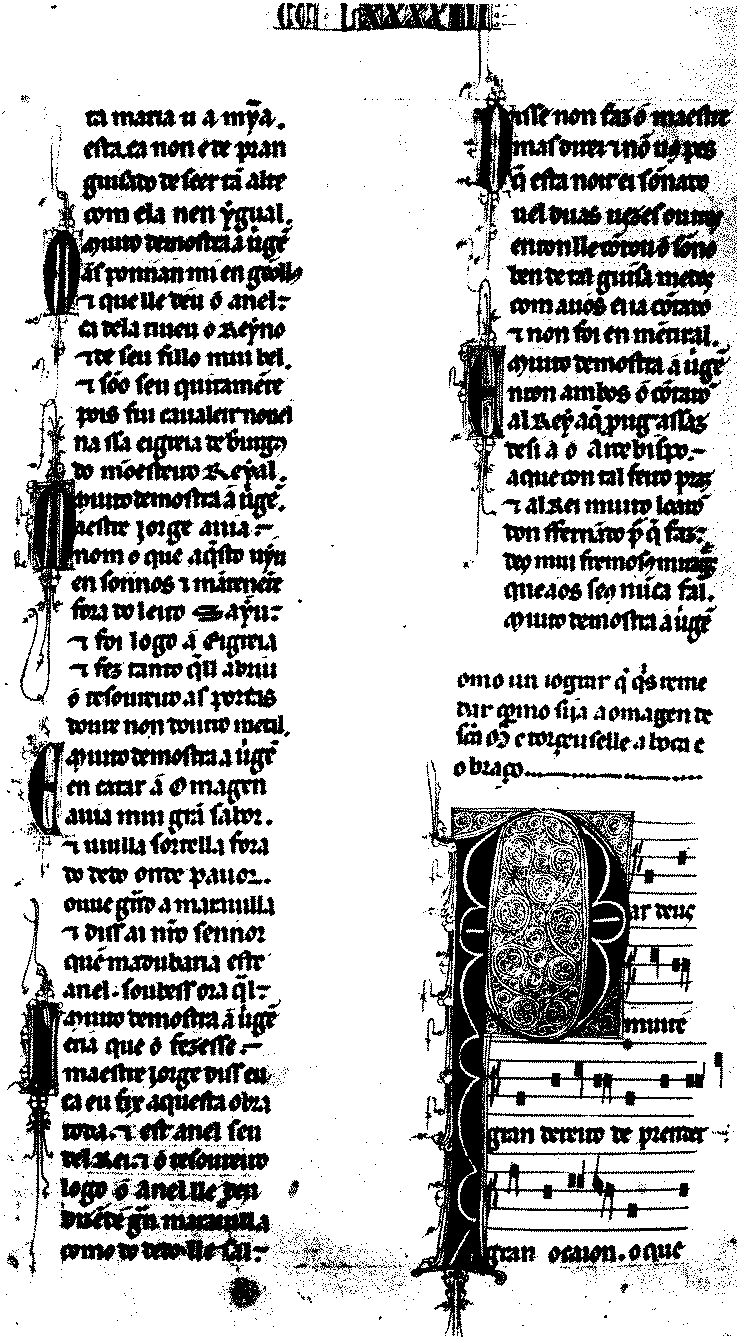 CCLXXXXIII
ta maria u a mỹa.
esta.ca non é de pran
guisado de seer tã alte
com ela nen ygual.
Muito demostra a uigẽ
Mas ponnan mi en geollos
⁊ que lle deu o anel
ca dela tiueu o Reyno
⁊ de seu fillo mui bel.
⁊ sõo seu quitamẽte
pois fui caualeir nouel
na ssa eigreia de burgos
do mõesteiro Reyal.
Muito demostra a uigẽ.
Maestre jorge auia
nom o que aq̃sto uyu
en sonnos ⁊ mãtenẽte
fora do leito sayu
⁊ foi logo á eigreia
⁊ fez tanto q̃ll abriu
o tesoureiro as portas
donde non douro metal.
Muito demostra a uigẽ
E en catar á Omagen
auia mui grã sabor.
⁊ uiulla sortella fora
do dedo onde pauor.
ouue grãd a marauilla
⁊ diss ai nr̃o sennor
quẽ madubaria este
anel. soubess ora q̃l
Muito demostra a uigẽ
eria que o fezesse.
maestre jorge diss eu
ca eu fix aquesta obra
toda. ⁊ est anel seu
del Rei. ⁊ o tesoureiro
logo o anel lle deu
ouue de gñ marauilla
como do dedo lle sal
Disse non faz o maestre
mas direi ⁊ nõ uos pes
q̃ esta noit ei sõnado
uel duas uezes ou tres
enton lle cõtou o sõno
ben de tal guisa medes
com a uos eia cõtado
⁊ non foi en mẽt ital.
Muito demostra a uigẽ
Enton ambos o cõtarõ
al Rey aq̃ proug assaz
desi a o Arcebispo.
a que con tal feito praz
⁊ al Rei muito loarõ
don ffernãdo p̃ q̃ faz
deo mui fremosos miragres
que aos seos nũca fal.
Muito demostra a uigẽ
omo un iograr q̃ q̃s reme
dar como sija a omagen de
scã Mª e torceuselle a boca e
o braço
Par deus
muit e
gran dereito de prender
gran ocaion. o que